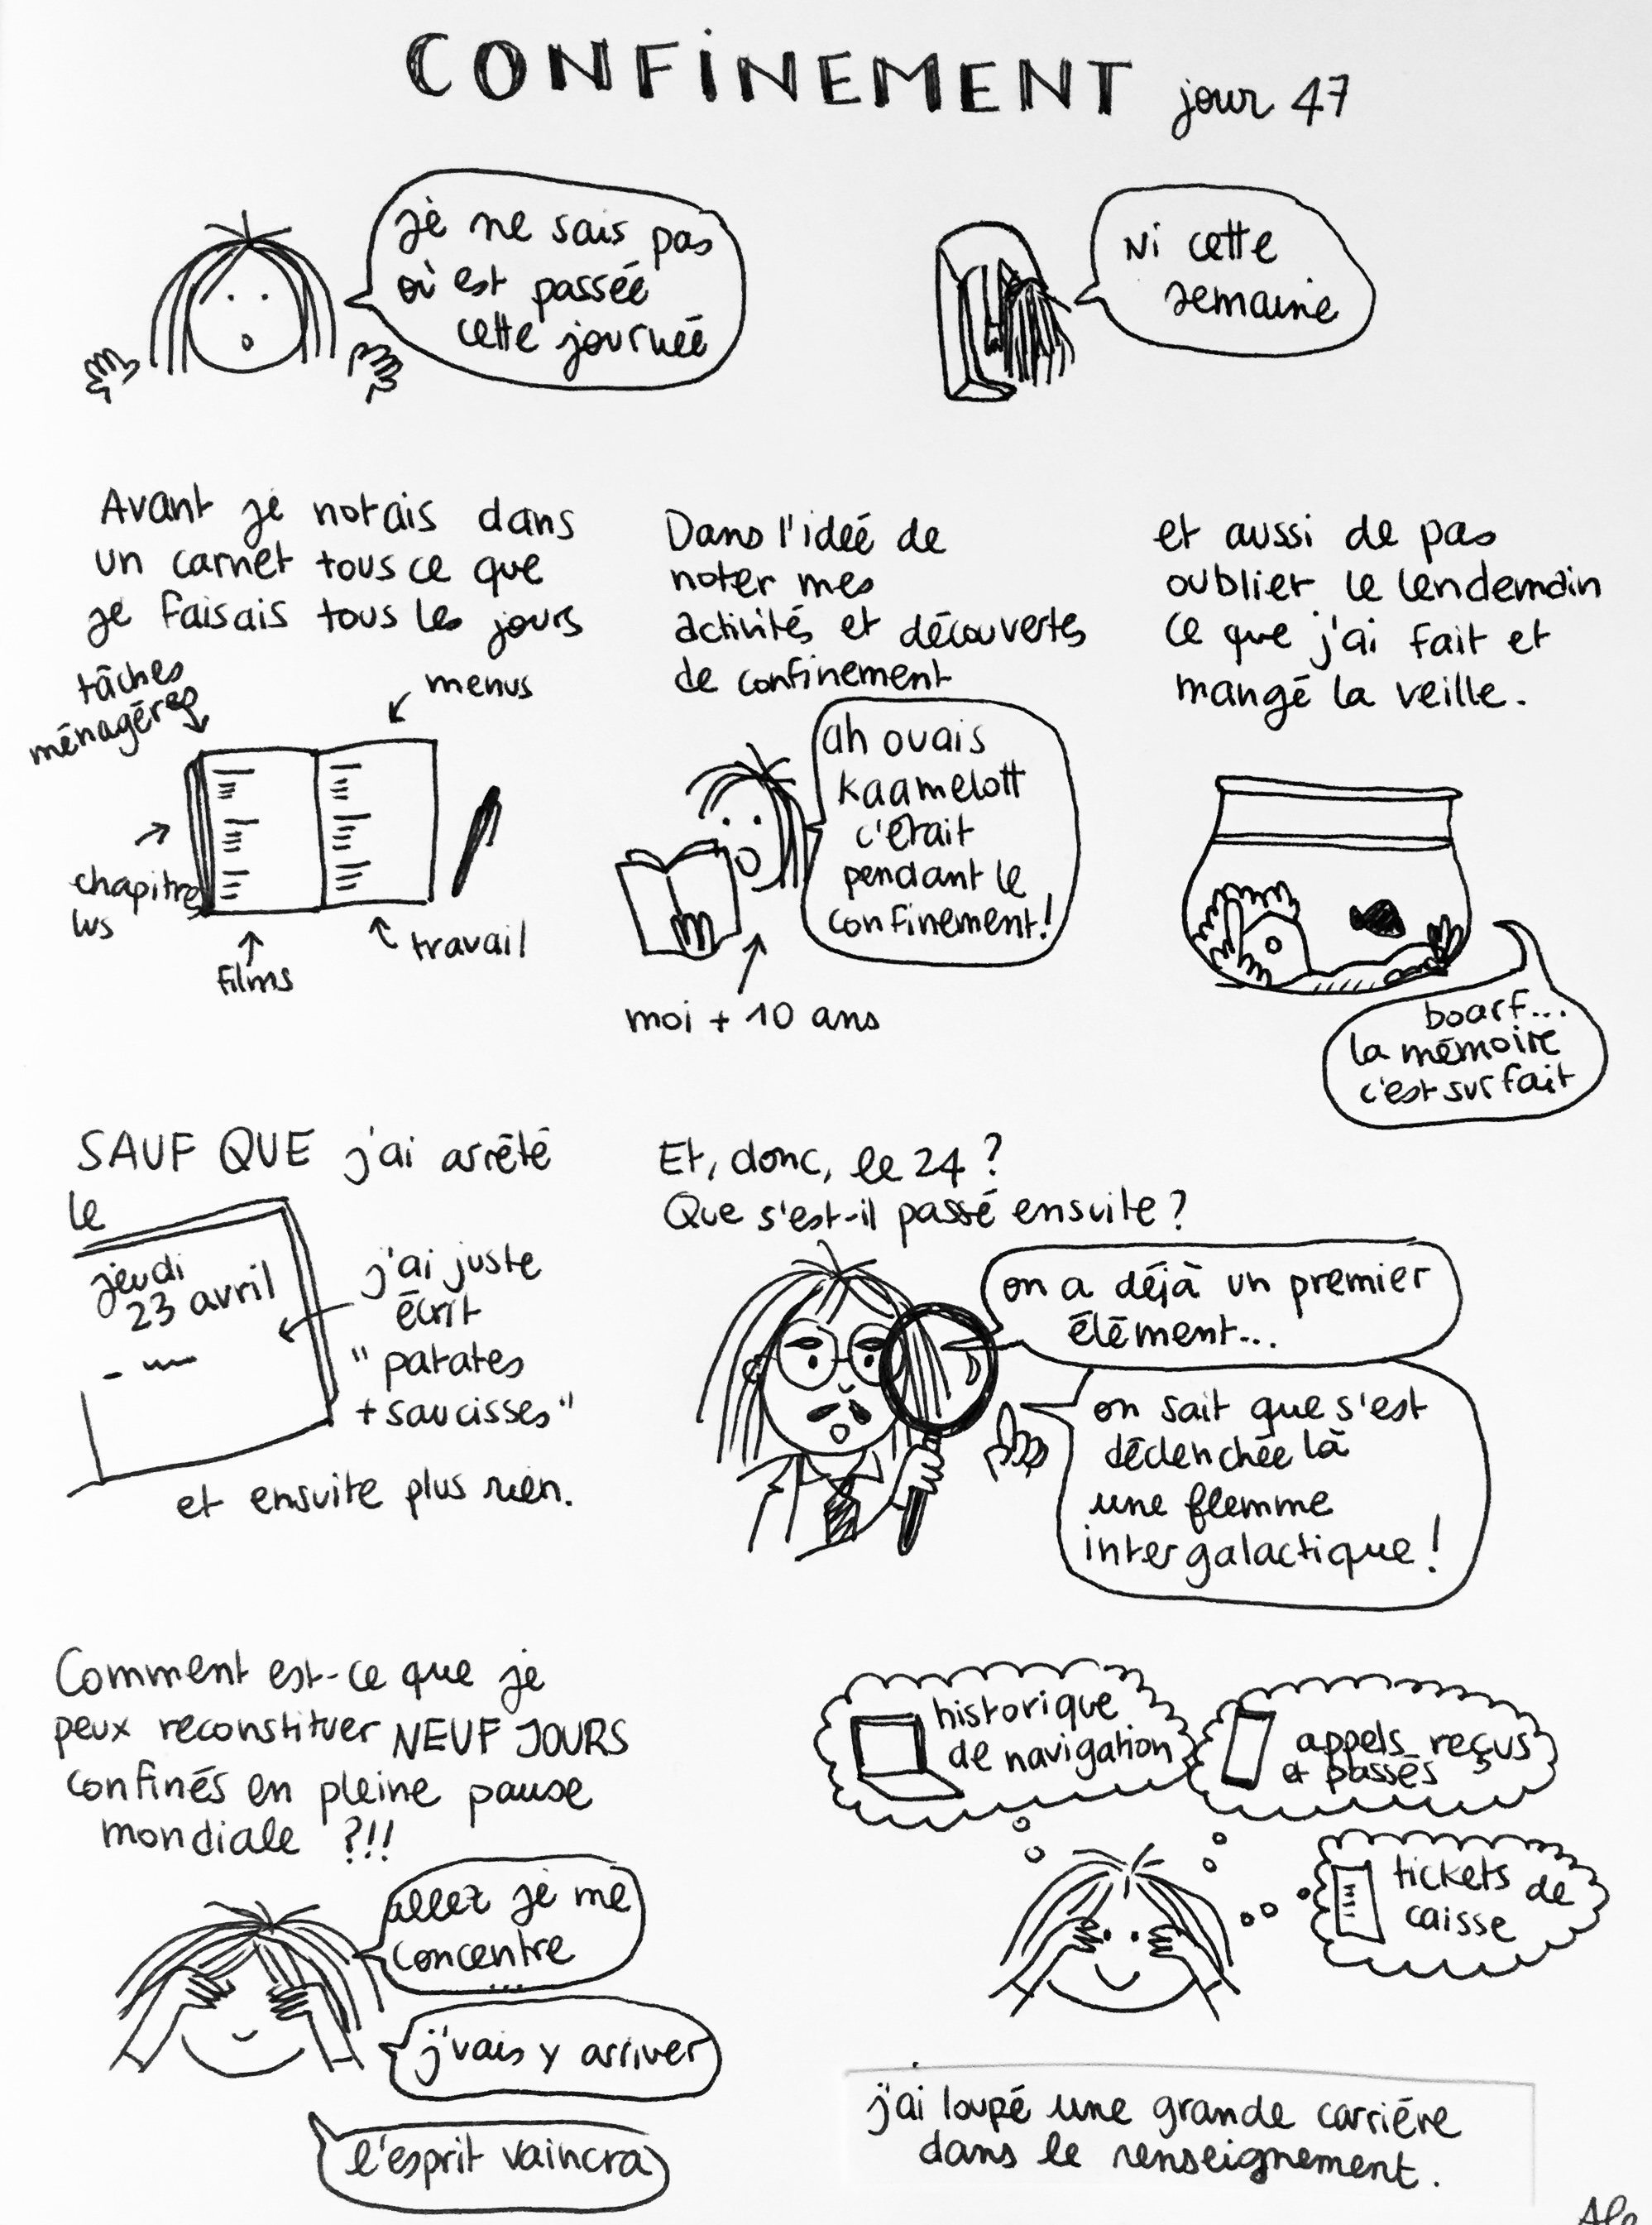 CONFINEMENT jour 47
je ne sais pas
où est passée
cette journée
Ni cette
semaine
Avant je notais dans
un carnet tous ce que
je faisais tous les jours
tâches
ménagères
menus
chapitres
lus
films
travail
Dans l'idée de
noter mes
activités et découvertes
de confinement
ah ouais
kaamelott
c'était
pendant le
confinement!
moi + 10 ans
et aussi de pas
oublier le lendemain
ce que j'ai fait et
mangé la veille.
boarf...
la mémoire
c'est surfait
SAUF QUE j'ai arrêté
le
jeudi
23 avril
j'ai juste
écrit
"patates
+ saucisses"
et ensuite plus rien.
Et, donc, le 24 ?
Que s'est-il passé ensuite ?
on a déjà un premier
élément...
on sait que s'est
déclenchée là
une flemme
intergalactique !
Comment est-ce que je
peux reconstituer NEUF JOURS
confinés en pleine pause
mondiale ?!!
allez je me
concentre
...
j'vais y arriver
l'esprit vaincra
historique
de navigation
appels reçus
et passés
tickets de
caisse
j'ai loupé une grande carrière
dans le renseignement.